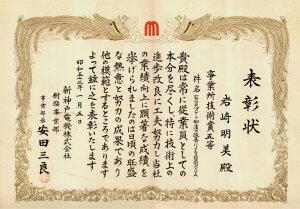 表彰状
事業所技術賞弐等
岩崎明美殿
貴殿は常に従業員としての
本分を尽くし特に技術上の
進歩改良に工夫努力し当社
の業績向上に顕著な成績を
挙げられましたのは日頃の旺盛
な熱意と努力の成果であり
他の模範とするところであります
よって茲に之を表彰いたします
昭和五十三年一月五日
新神戸電機株式会社
事業部長 安田三良